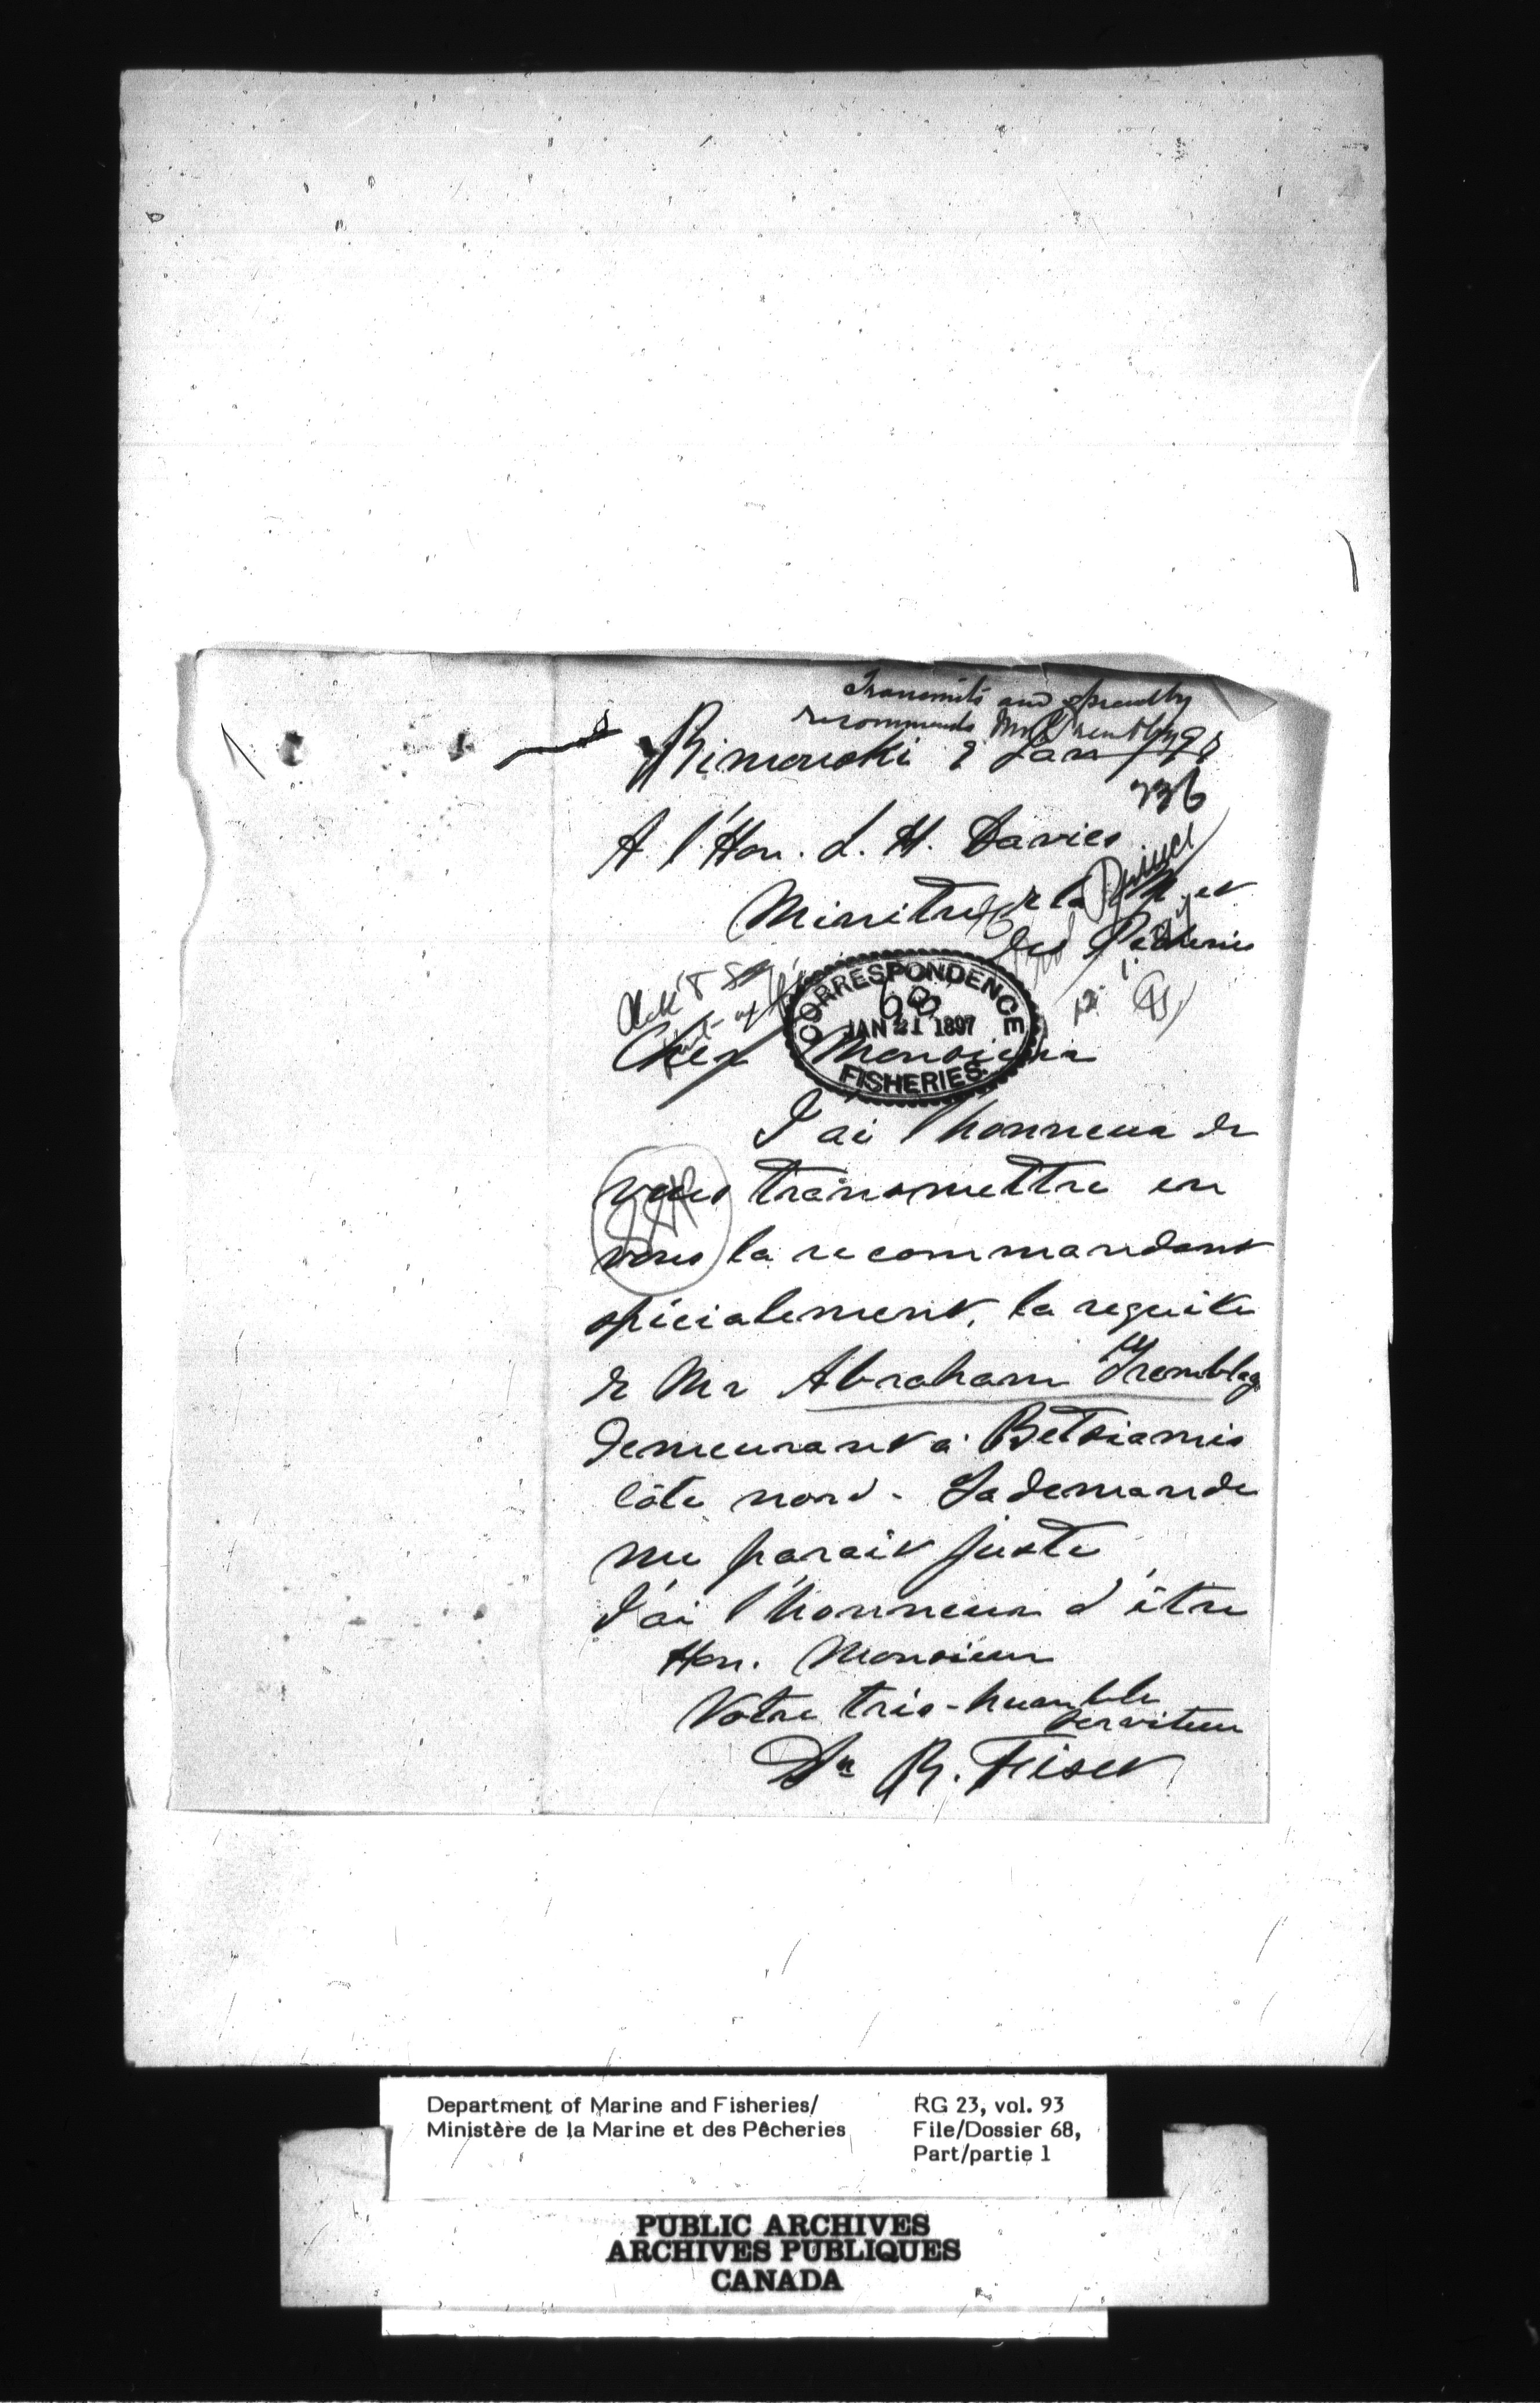 Transmits and specially
recommends Mr Tremblay
Rimouski 9 Jan 1897
236
A l'Hon. L. H. Davies
Ministre de la M et
des Pêcheries
Prince
CORRESPONDENCE
68
JAN 21 1897
FISHERIES.
Cher Monsieur
J'ai l'honneur de
vous transmettre en
vous la recommandant
spécialement, la requête
de Mr Abraham Tremblay
demeurant à Betsiamis
Côte nord - La demande
me parait juste
J'ai l'honneur d'être
Hon. Monsieur
Votre très-humble
serviteur
Dr R. Fiset
Department of Marine and Fisheries/
Ministère de la Marine et des Pêcheries
RG 23, vol. 93
File/Dossier 68,
Part/partie 1
PUBLIC ARCHIVES
ARCHIVES PUBLIQUES
CANADA